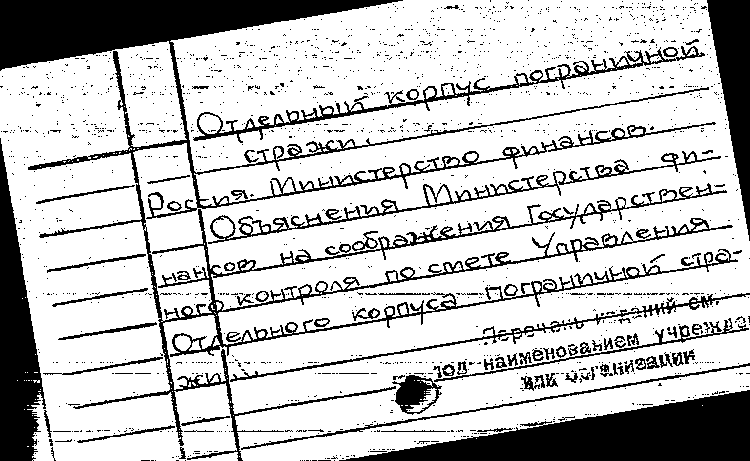 Отдельный корпус пограничной
стражи.
Россия. Министерство финансов.
Объяснения Министерства фи-
нансов на соображения Государствен-
ного контроля по смете Управления
Отдельного корпуса пограничной стра-
жи...
Перечень изданий см.
под наименованием учрежде
или организации